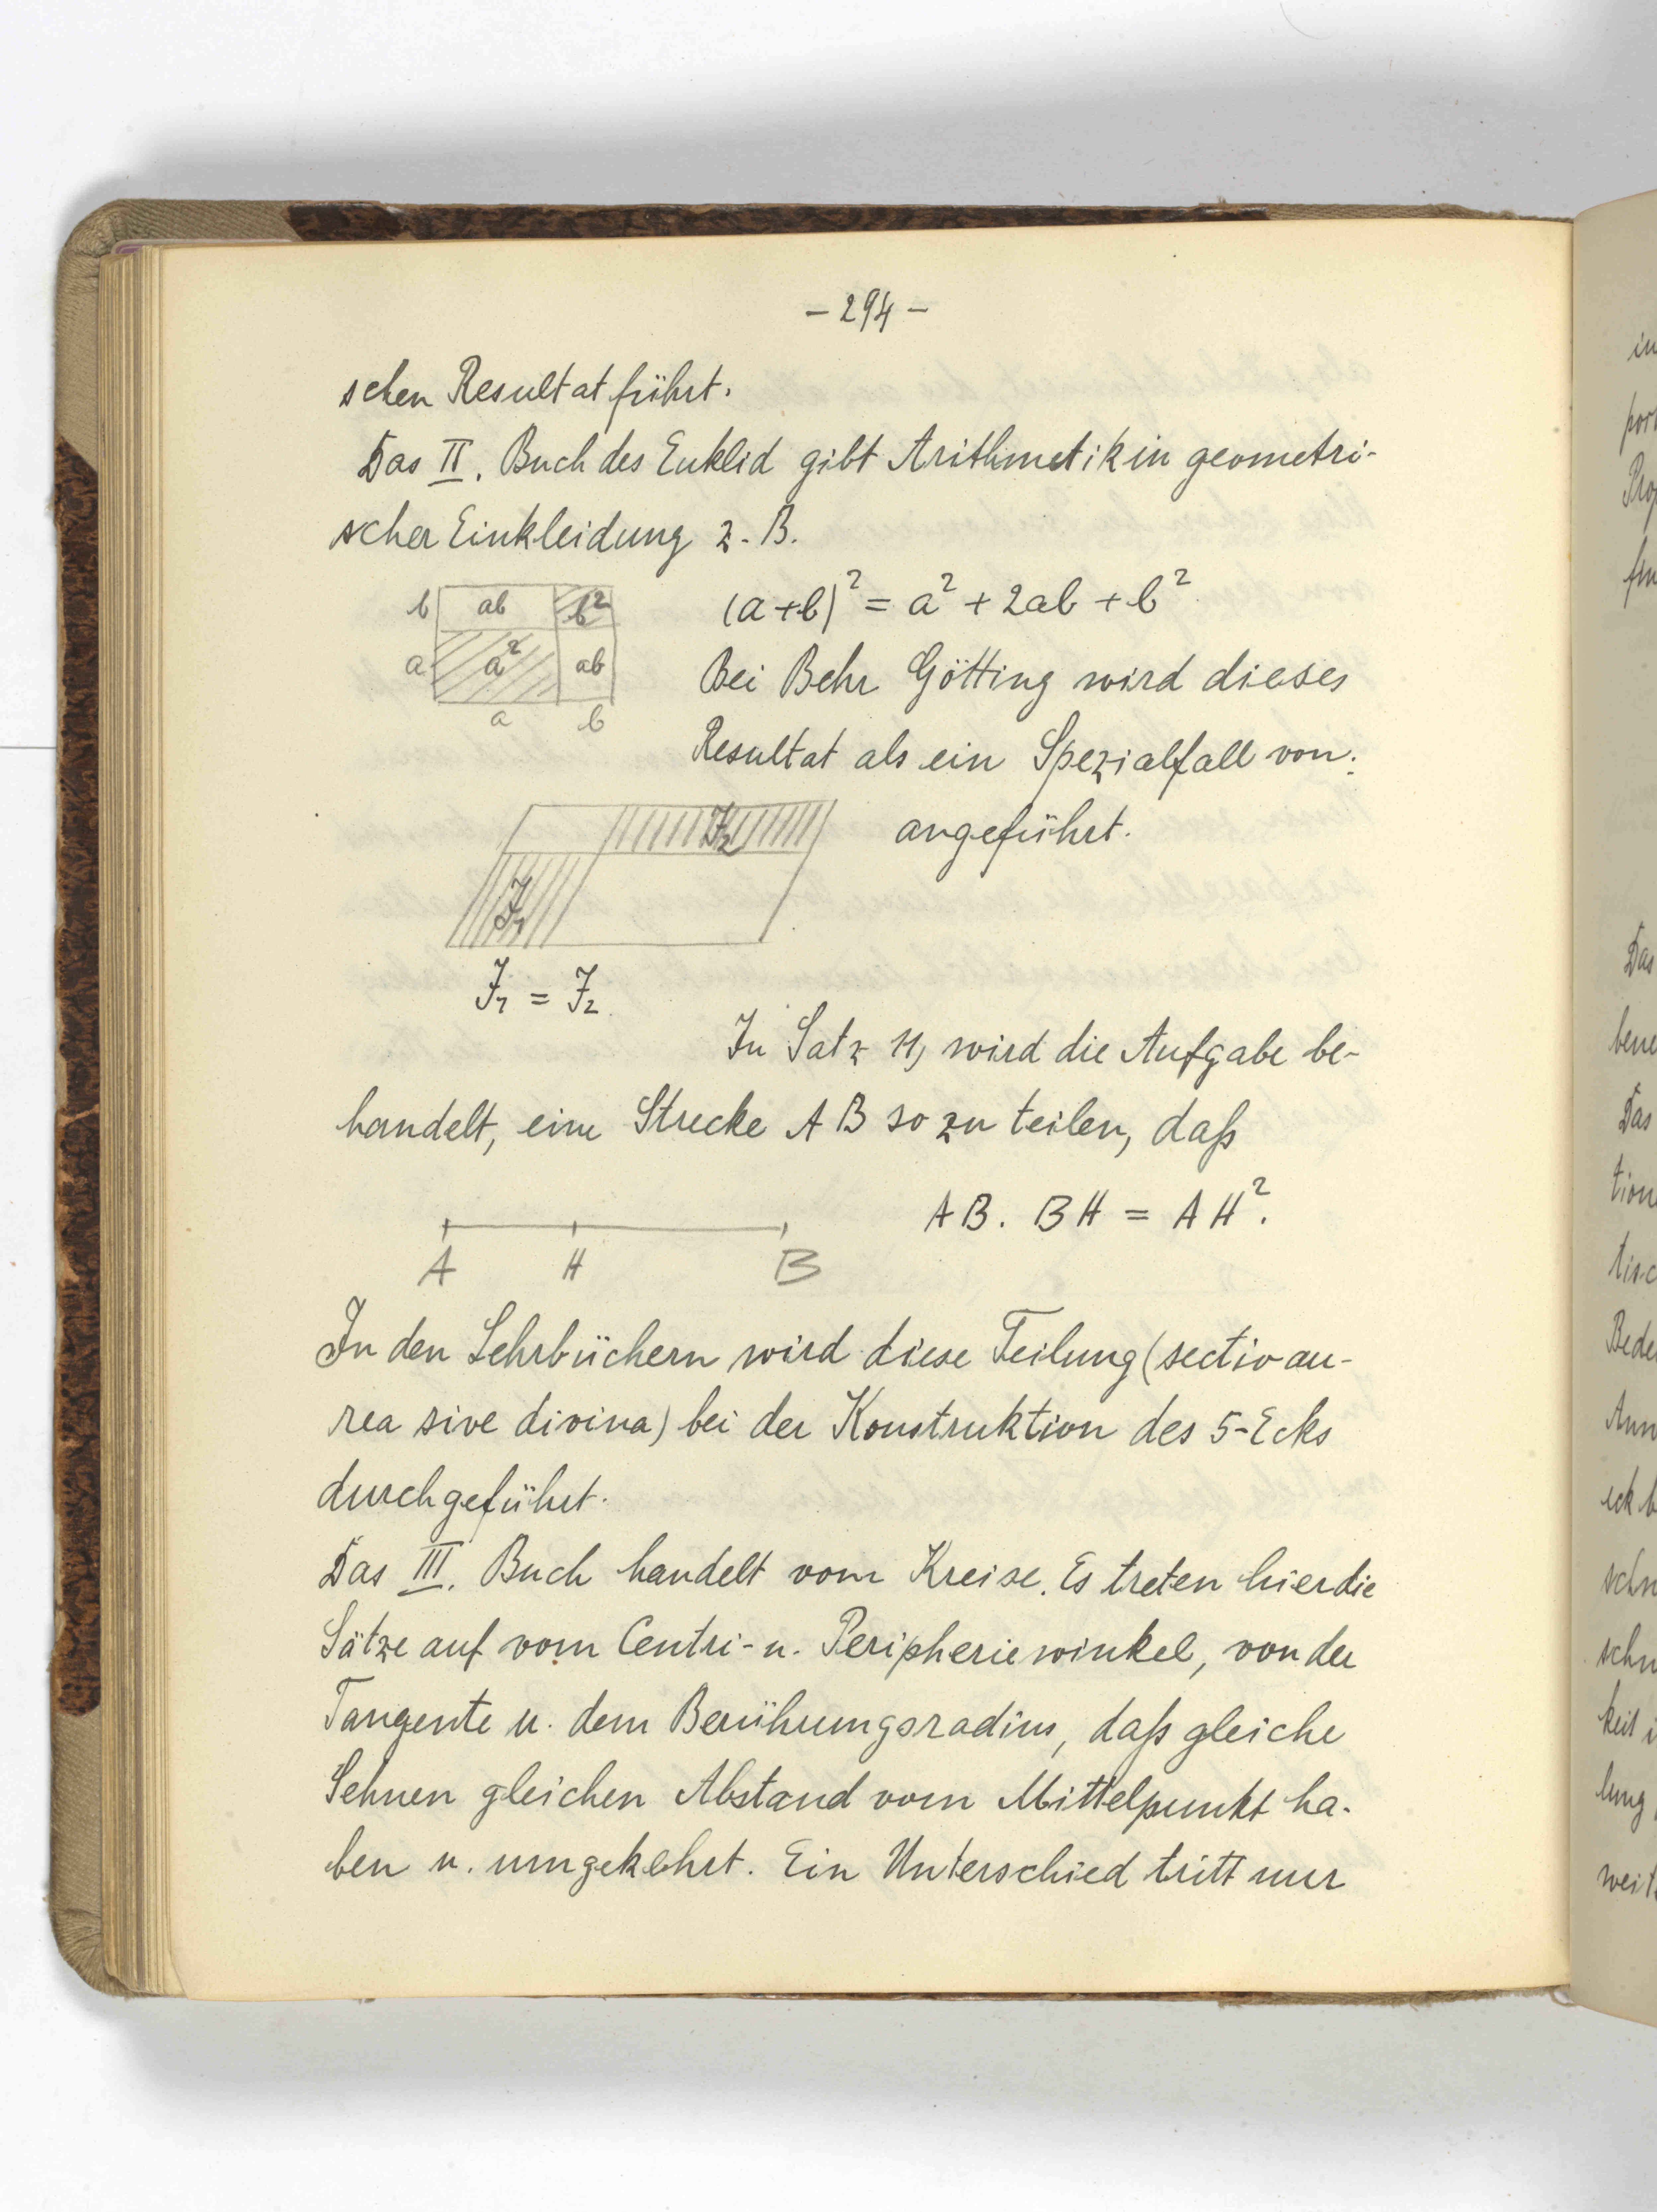 – 294 –
schen Resultat führt.
Das II. Buch des Euklid gibt Arithmetik in geometri-
scher Einkleidung z. B.
b ab b²
a a² ab
a b
(a+b)² = a² + 2ab + b²
Bei Behr Götting wird dieses
Resultat als ein Spezialfall von:
J₂
angeführt.
J₁
J₁ = J₂
In Satz 11, wird die Aufgabe be-
handelt, eine Strecke AB so zu teilen, daß
AB. BH = AH².
A H B
In den Lehrbüchern wird diese Teilung (sectio au-
rea sive divina) bei der Konstruktion des 5-Ecks
durchgeführt.
Das III. Buch handelt vom Kreise. Es treten hier die
Sätze auf vom Centri- u. Peripheriewinkel, von der
Tangente u. dem Berührungsradius, daß gleiche
Sehnen gleichen Abstand vom Mittelpunkt ha-
ben u. umgekehrt. Ein Unterschied tritt nur